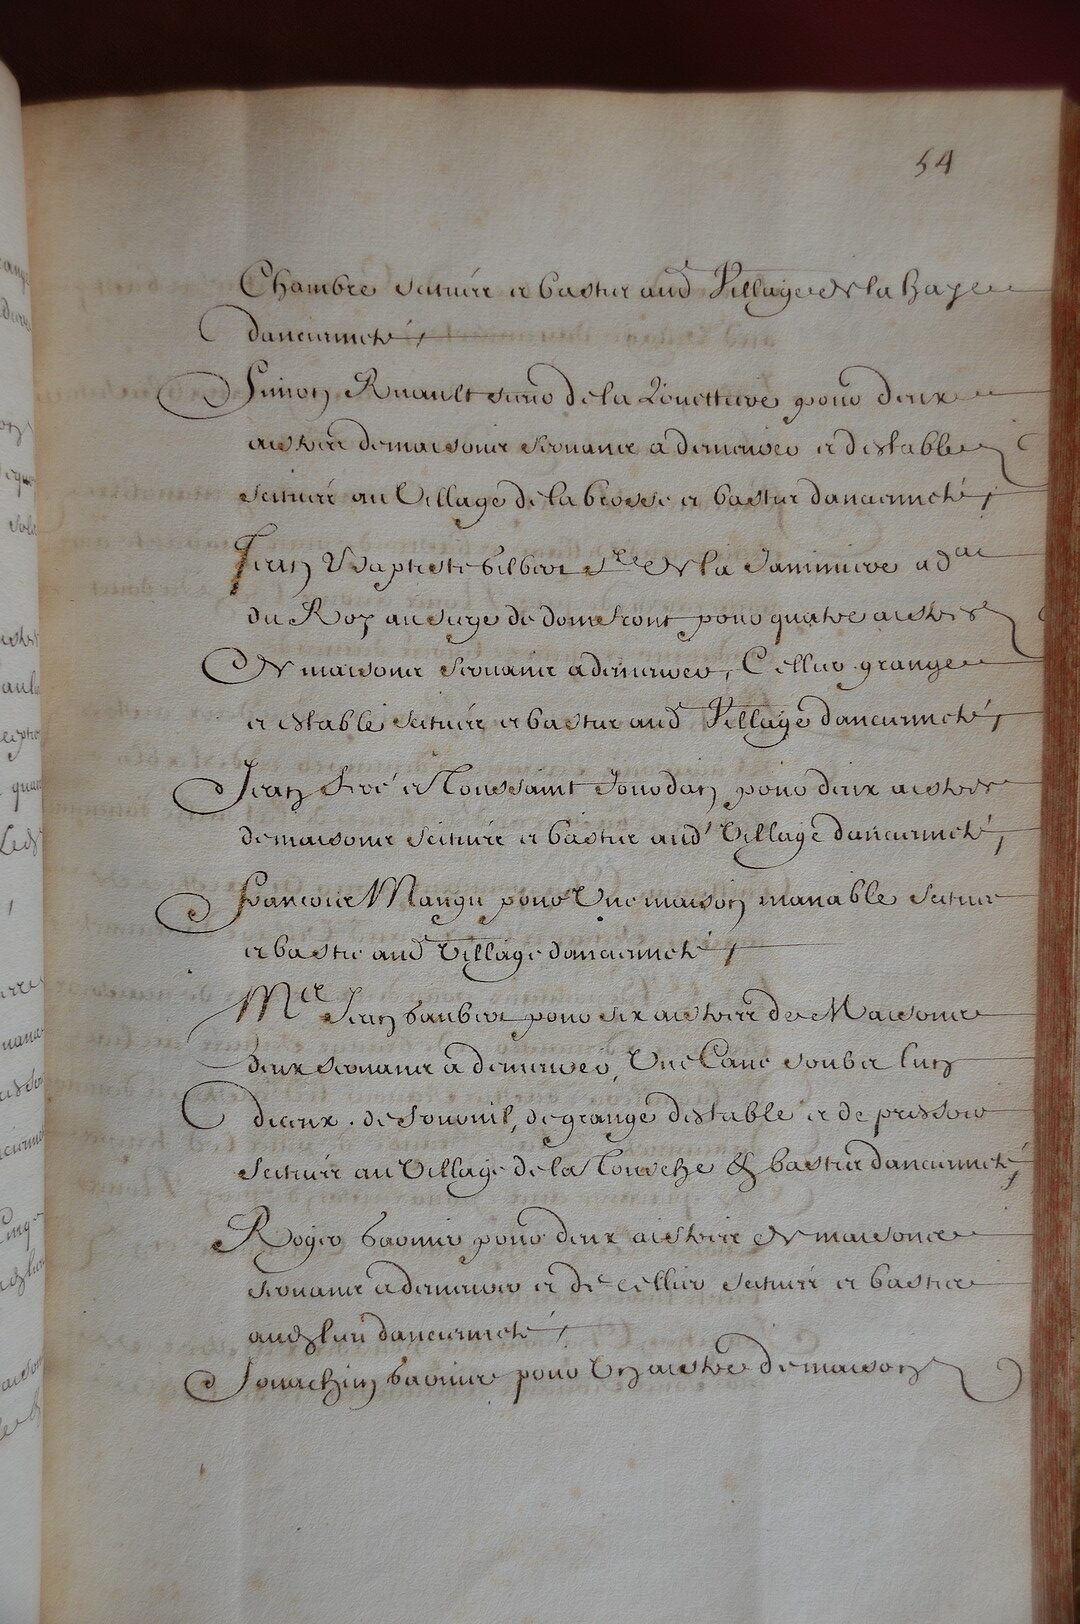 54
Chambre scituéés et basties aud Village de la haye
d'ancienneté,
Simon Ruault sieur de la Louettiere pour deux
aistres de maisons servans a demeurer et d'estable
scituéés au Village de la brosse et basties d'ancienneté,
Jean Baptiste Gilbert Sr de la Jaminiere ad
du Roy au siege de domfront pour quatre aistres
de maisons servans a demeurer, Cellier grange
et estable scituéés et basties aud Village d'ancienneté,
Jean Siré et Toussaint Jourdan pour deux aistres
de maisons scituéés et basties aud' Village d'ancienneté,
Francois Mangu pour Une maison manable scituee
et bastie aud Village d'ancienneté,
Mre Jean Gaubert pour six aistres de Maisons
deux servans a demeurer, Une Cave soubs lun
diceux. de fournil, de grange d'estable et de pressoir
scitués au Village de la Tousche & basties d'ancienneté,
Roger Garnier pour deux aistres de maisons
servans a demeurer et de cellier scitués et basties
aud lieu d'ancienneté,
Jouachin Garnier pour Un aistre de maison